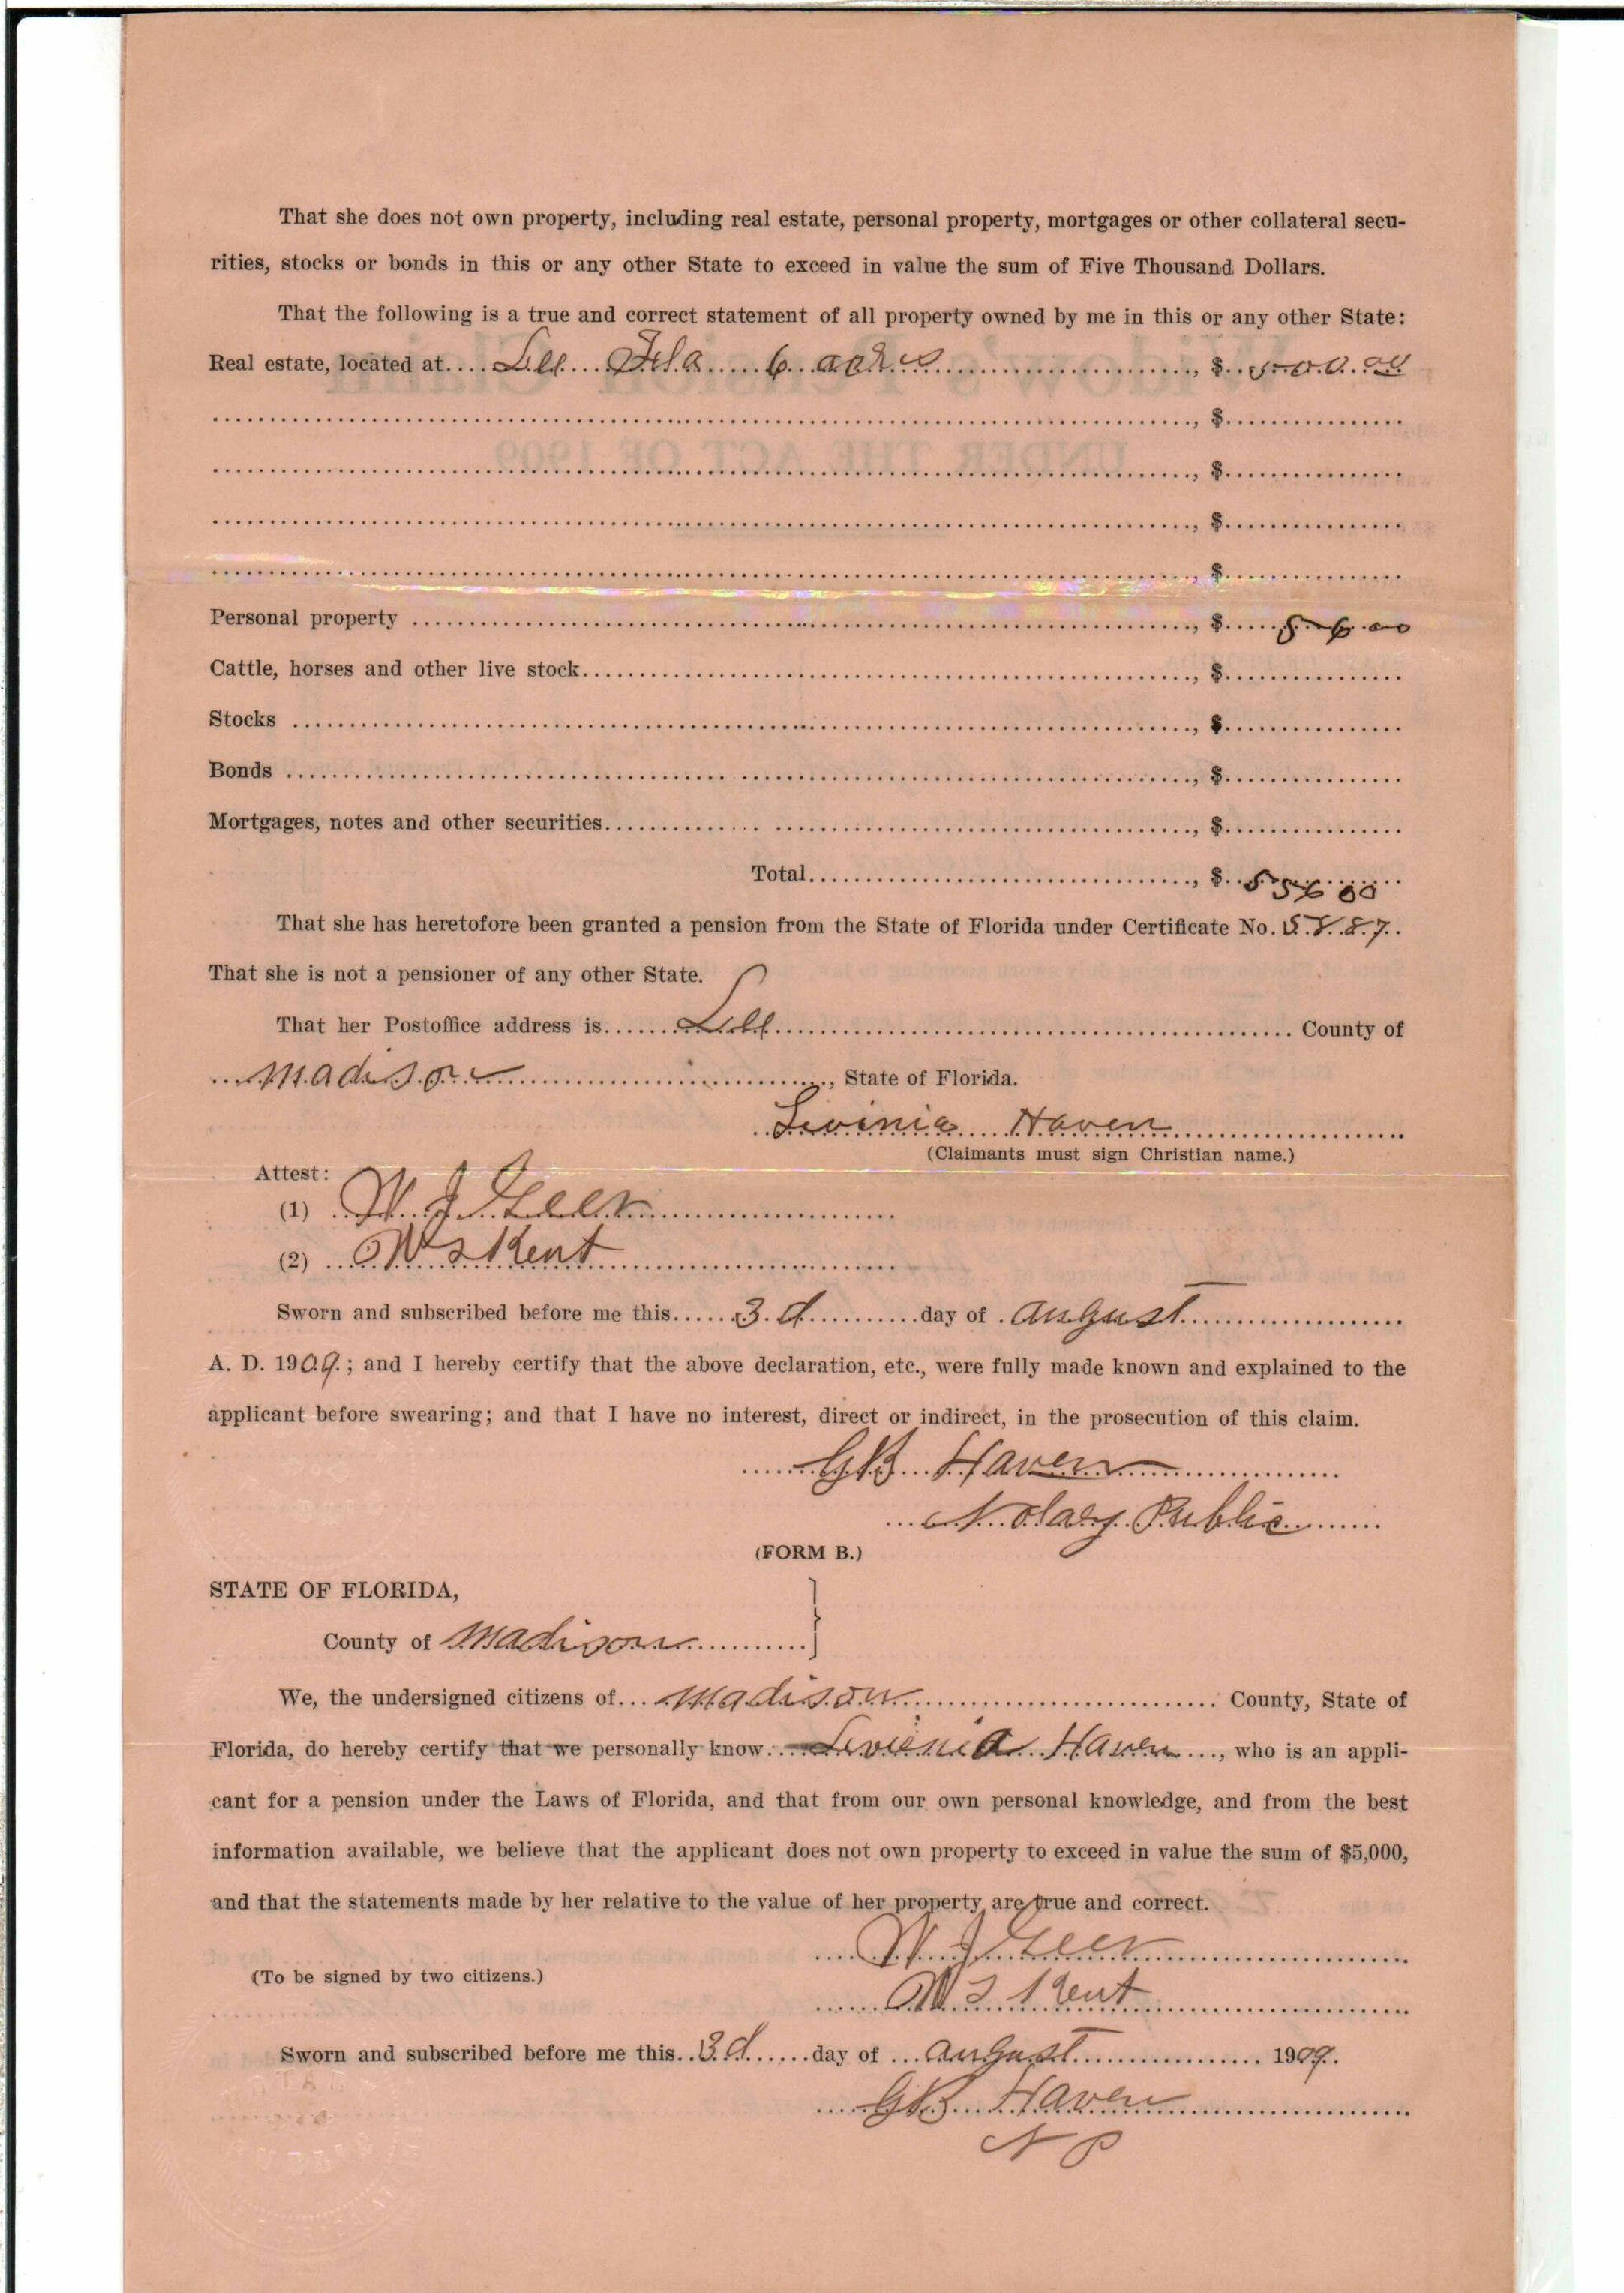 That she does not own property, including real estate, personal property, mortgages or other collateral secu-
rities, stocks or bonds in this or any other State to exceed in value the sum of Five Thousand Dollars.
That the following is a true and correct statement of all property owned by me in this or any other State:
Real estate, located at.... Lee Fla 6 acres ...., $ 500.00
...., $....
...., $....
...., $....
...., $....
Personal property ...., $ 56 00
Cattle, horses and other live stock...., $....
Stocks ...., $....
Bonds ...., $....
Mortgages, notes and other securities...., $....
Total...., $ 556 00
That she has heretofore been granted a pension from the State of Florida under Certificate No.
That she is not a pensioner of any other State.
That her Postoffice address is.... Lee .... County of
Madison ...., State of Florida.
Levinia Haven
(Claimants must sign Christian name.)
Attest:
(1) W. J.
(2) W S Kent
Sworn and subscribed before me this.... 3d ....day of august
A. D. 1909.; and I hereby certify that the above declaration, etc., were fully made known and explained to the
applicant before swearing; and that I have no interest, direct or indirect, in the prosecution of this claim.
GB Haven
Notary Public
(FORM B.)
STATE OF FLORIDA,
County of Madison
We, the undersigned citizens of... Madison .... County, State of
Florida, do hereby certify that we personally know.... Levienia Haven ...., who is an appli-
cant for a pension under the Laws of Florida, and that from our own personal knowledge, and from the best
information available, we believe that the applicant does not own property to exceed in value the sum of $5,000,
and that the statements made by her relative to the value of her property are true and correct.
W. J.
(To be signed by two citizens.)
W S Kent
Sworn and subscribed before me this.. 3d ....day of ... august .... 1909.
GB Haven
N P